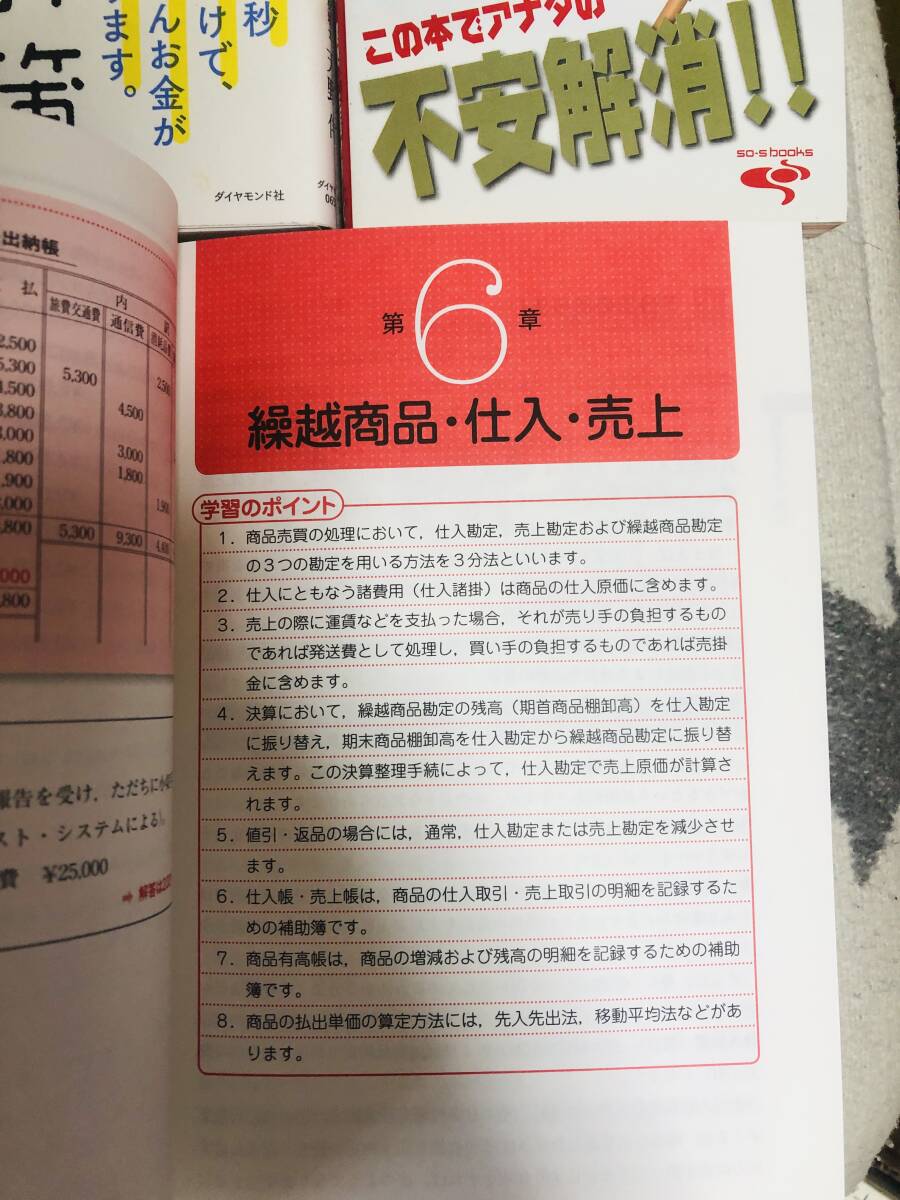 秒
けで、
んお金が
ます。
ダイヤモンド社
この本でアナタの
不安解消!!
so-s books
出納帳
払
内
訳
旅費交通費
通信費
2,500
5,300
5,300
4,500
4,500
3,800
3,000
3,000
1,800
1,800
1,900
1,900
5,300
9,300
,800
報告を受け，ただちに小
スト・システムによる）。
費 ¥25,000
第6章
繰越商品・仕入・売上
学習のポイント
1．商品売買の処理において，仕入勘定，売上勘定および繰越商品勘定
の3つの勘定を用いる方法を3分法といいます。
2．仕入にともなう諸費用（仕入諸掛）は商品の仕入原価に含めます。
3．売上の際に運賃などを支払った場合，それが売り手の負担するもの
であれば発送費として処理し，買い手の負担するものであれば売掛
金に含めます。
4．決算において，繰越商品勘定の残高（期首商品棚卸高）を仕入勘定
に振り替え，期末商品棚卸高を仕入勘定から繰越商品勘定に振り替
えます。この決算整理手続によって，仕入勘定で売上原価が計算さ
れます。
5．値引・返品の場合には，通常，仕入勘定または売上勘定を減少させ
ます。
6．仕入帳・売上帳は，商品の仕入取引・売上取引の明細を記録するた
めの補助簿です。
7．商品有高帳は，商品の増減および残高の明細を記録するための補助
簿です。
8．商品の払出単価の算定方法には，先入先出法，移動平均法などがあ
ります。